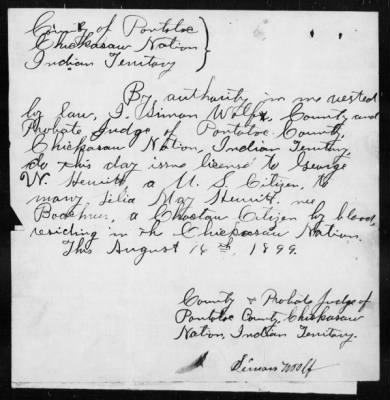 County of Pontotoc
Chickasaw Nation
Indian Territory
By authority in me vested
by law, I, Simon Wolfe, County and
Probate Judge of Pontotoc County,
Chickasaw Nation, Indian Territory,
do this day issue license to George
W. Hewitt, a U. S. Citizen, to
marry Lelia May Hewitt, nee
a Choctaw Citizen by blood,
residing in the Chickasaw Nation.
This August 14th, 1899.
County & Probate Judge of
Pontotoc County, Chickasaw
Nation, Indian Territory.
Simon Woolf